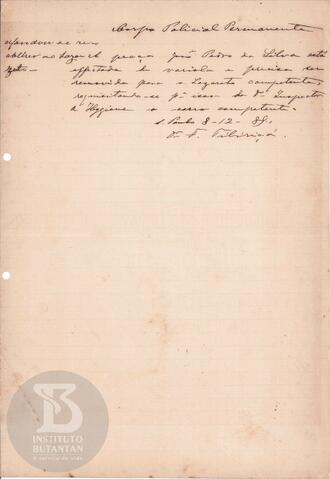 Corpo Policial Permanente
Mandou-se re-
colher ao Lazar
A praça João Pedro da Silva está
affectada de variola e precisa ser
removida para o Lazareto competente
requisitando-se pª isso do Dr Inspector
d'Hygiene o carro competente.
S. Paulo 8-12-89.
Dr. F. Tibiriçá.
INSTITUTO
BUTANTAN
A serviço da vida